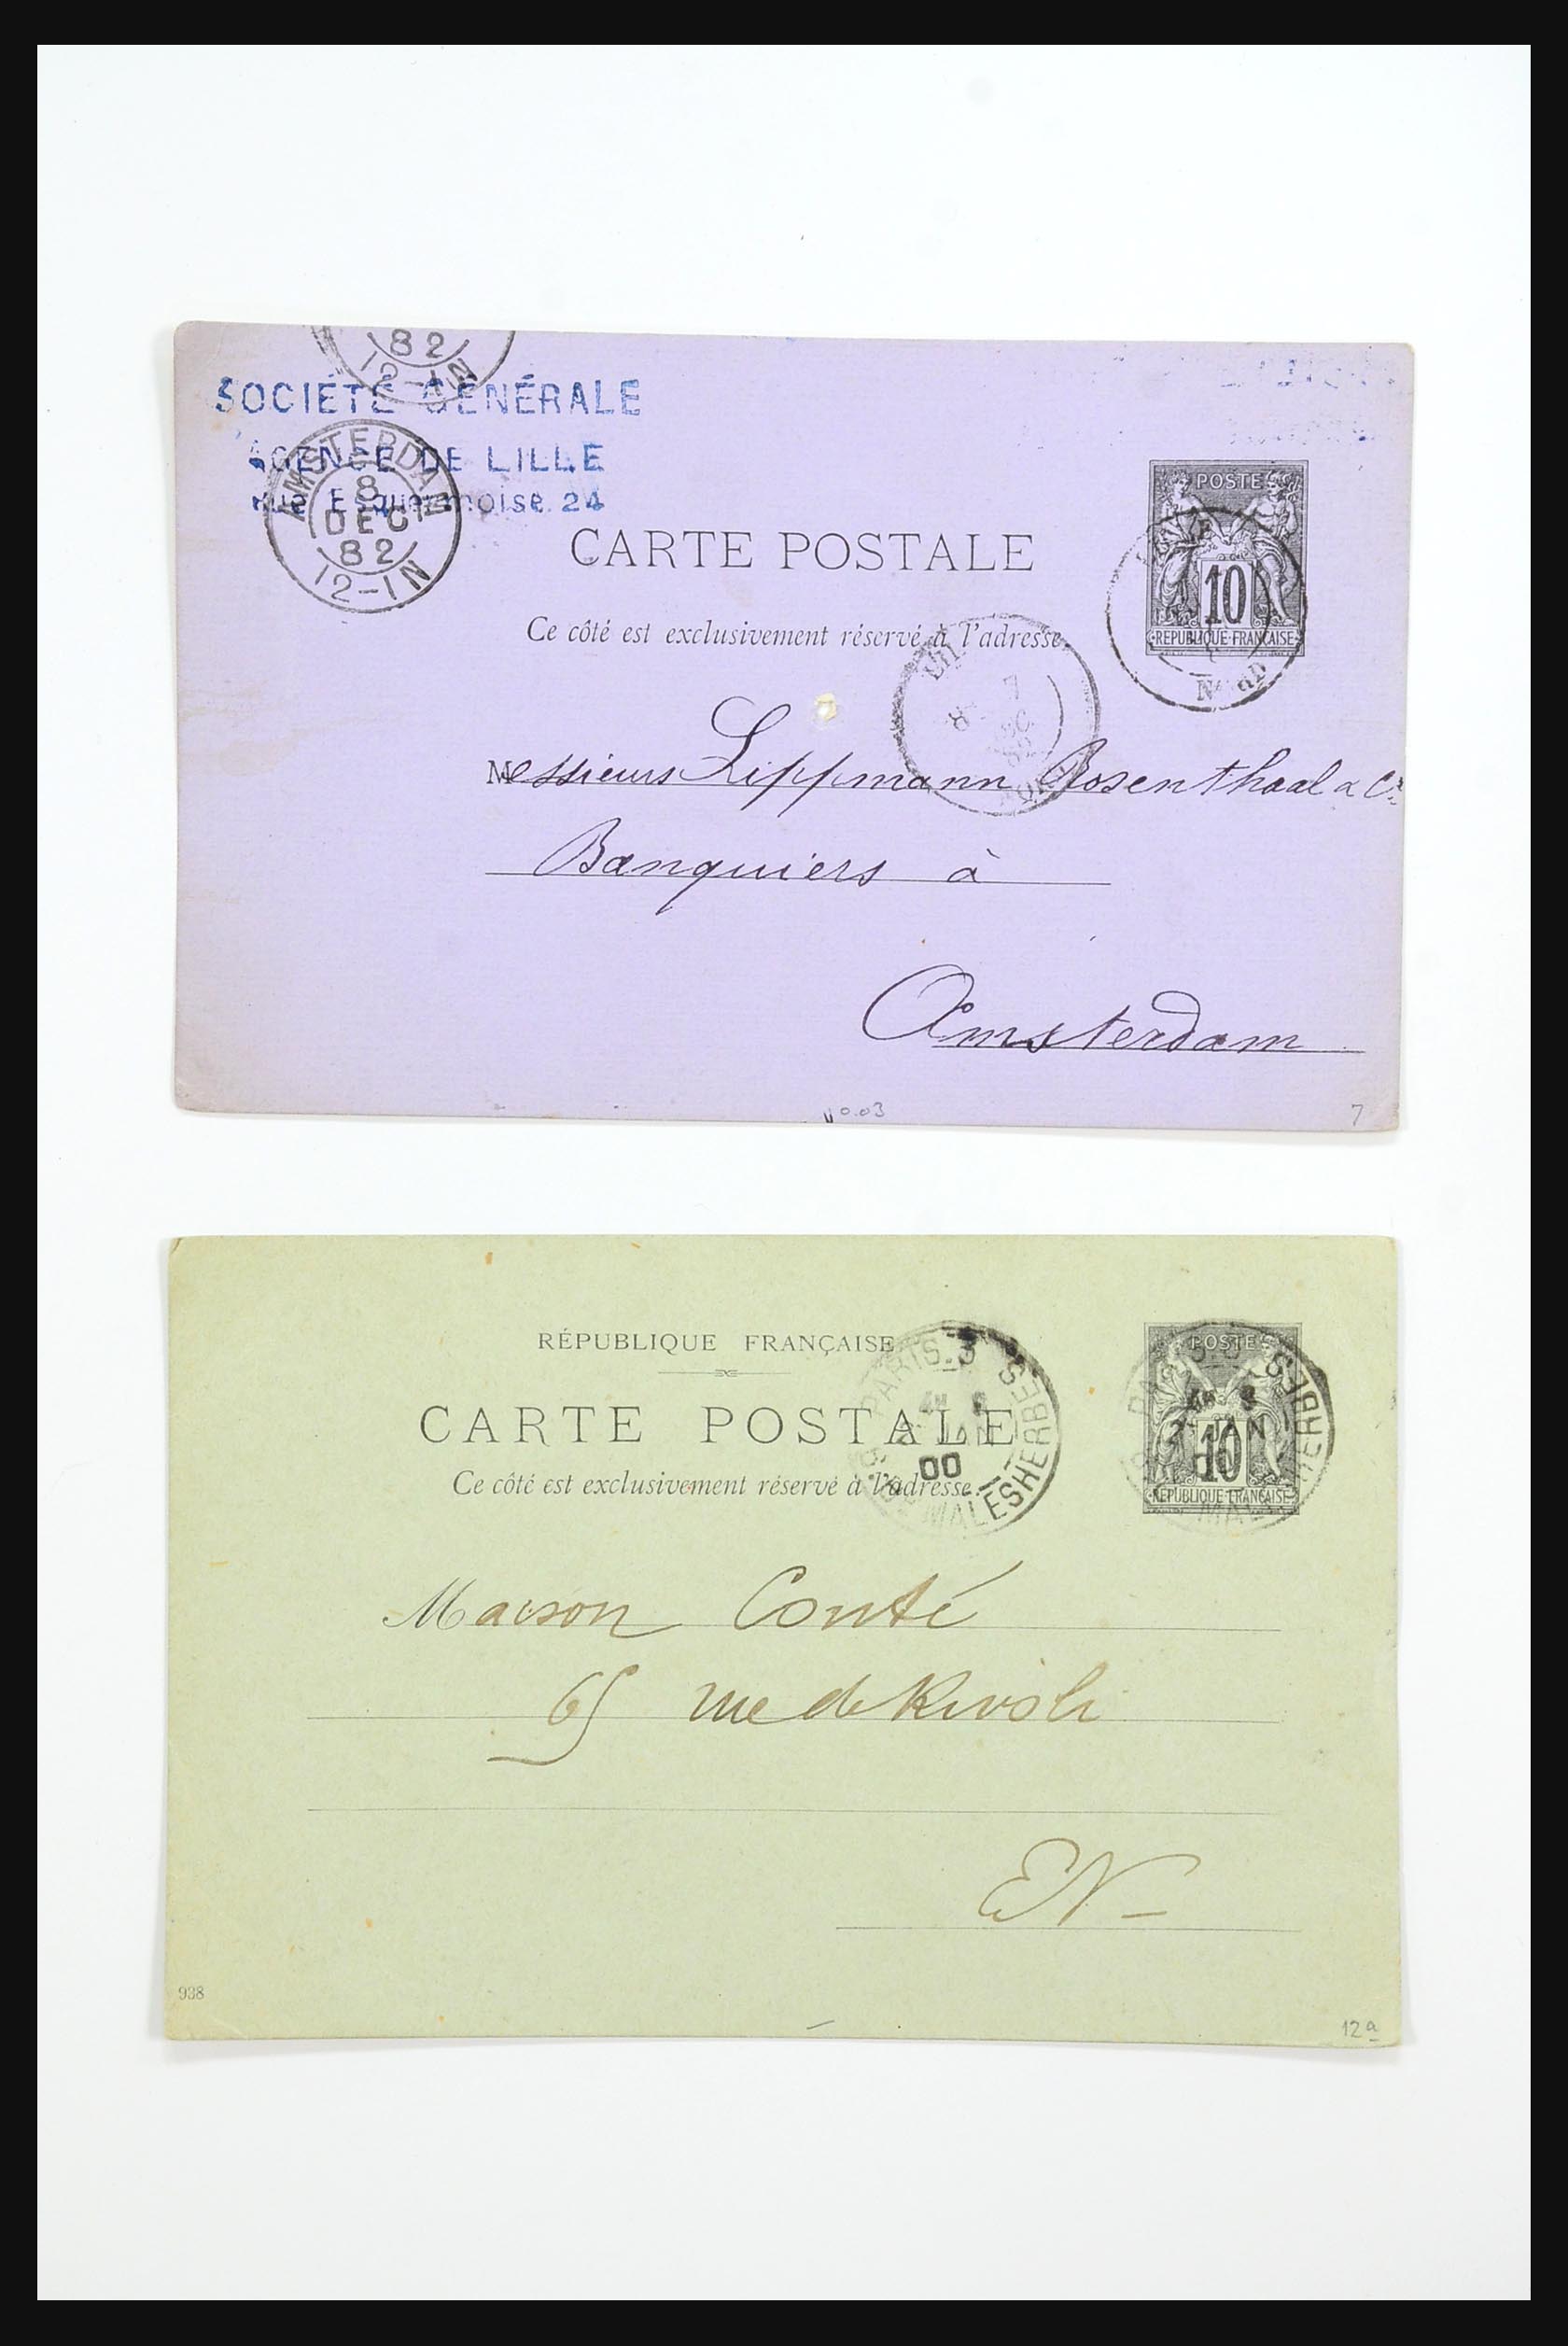 82
12-1N
SOCIÉTÉ GÉNÉRALE
AGENCE DE LILLE
Rue Esquermoise 24
AMSTERDAM
8
DEC
82
12-1N
CARTE POSTALE
Ce côté est exclusivement réservé à l'adresse.
POSTE
10
REPUBLIQUE FRANÇAISE
NORD
7
Messieurs Lippmann Rosenthaal & Cie
Banquiers à
Amsterdam
0.03
7
RÉPUBLIQUE FRANÇAISE
CARTE POSTALE
Ce côté est exclusivement réservé à l'adresse.
PARIS-3
00
MALESHERBES
POSTES
JAN
10
REPUBLIQUE FRANÇAISE
MALESHERBES
Maison Conté
65 rue de Rivoli
EN-
938
12a